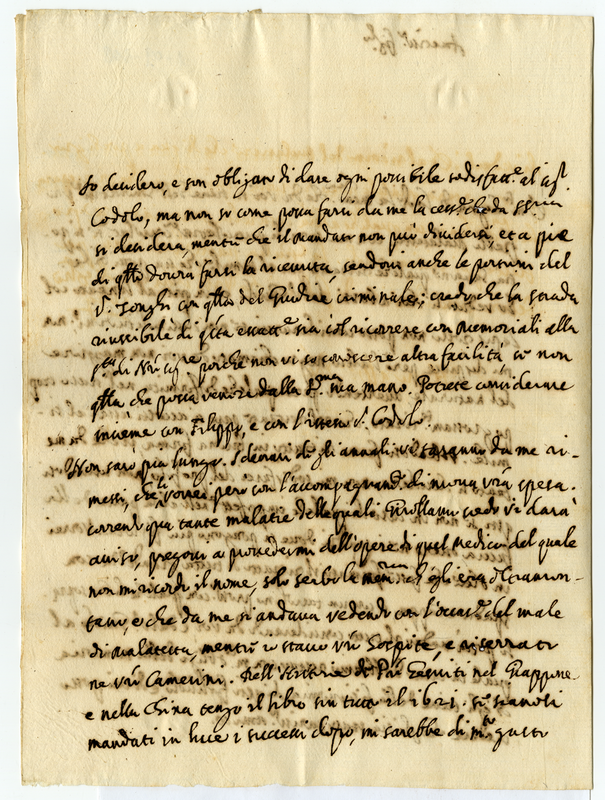 Io desidero, e son obligato di dare ogni possibile sodisfatt.e al sig.r
Codolo, ma non so come possa farsi da me la cess.e che da
si desidera, mentre che il mandato non può dividersi, et a piè
di q.llo dovrà farsi la ricevuta, sendovi anche le persone del
S.r Longhi con q.llo del Giudice criminale; credo che la strada
riuscibile di q.sta essatt.e sia col ricorrere con memoriali alla
di N.ro sig.re perche non vi so conoscere altra facilità, se non
q.lla che possa venire dalla sua mano. Potrete considerare
insieme con Filippo, e con l'istesso S.r Codolo.
Non sarò più lungo. I denari de gli annali vi saranno da me ri-
messi, che li vorrei però con l'accompagnand. di nuova vra spesa.
correndo qua tante malatie delle quali credo vi darà
aviso, pregovi a provedermi dell'opere di quel Medico del quale
non mi ricordo il nome, solo serbo la mem.ria ch'egli era oltramon-
tano, e che da me si andava vedendo con l'occas.e del male
di Malatesta, mentre io stavo v.ro Hospite, e riserrato
ne v.ri Camerini. Dell'historie de P.ri Giesuiti nel Giappone
e nella China tengo il libro sin tutto il 1621. se si sono li
mandati in luce i successi dopo, mi sarebbe di m.to gusto